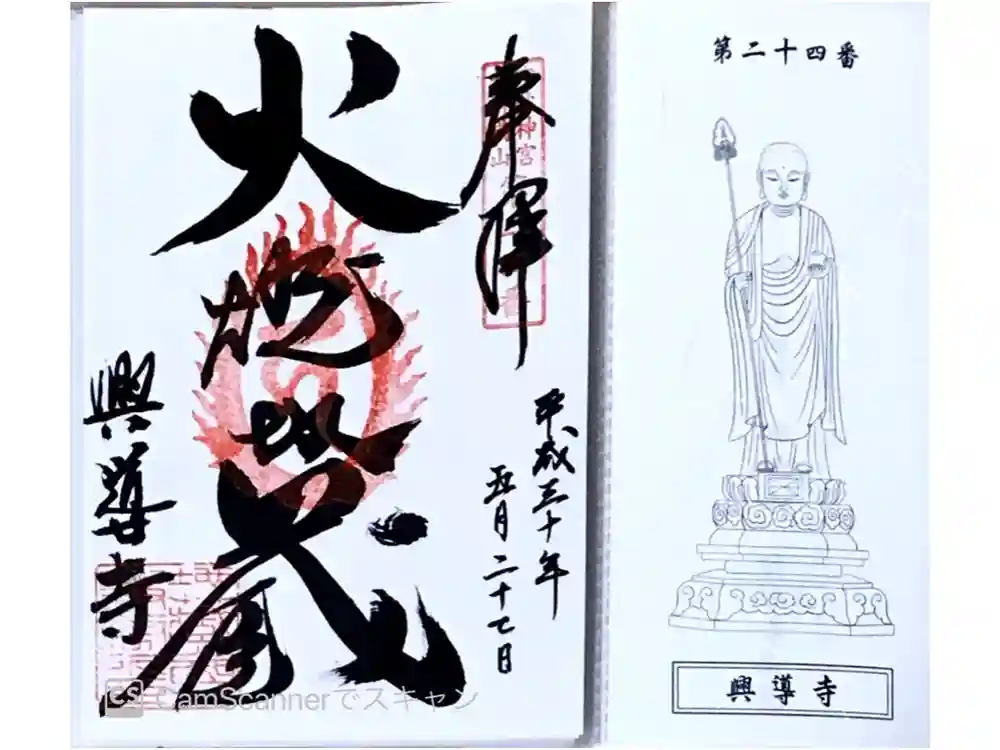 奉拝
平成三十年
五月二十七日
火焼地蔵
興導寺
第二十四番
興導寺
CS CamScannerでスキャン